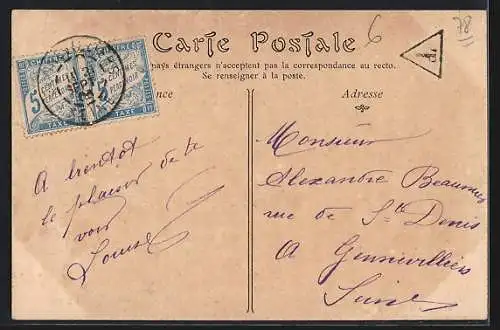 6
78
Carte Postale
pays étrangers n'acceptent pas la correspondance au recto.
Se renseigner à la poste.
Adresse
5
CENTIMES
À PERCEVOIR
TAXE
5
TAXE
T
A bientot
le plaisir de te
voir
Louise
Monsieur
Alexandre
rue de St Denis
A Gennevilliers
Seine